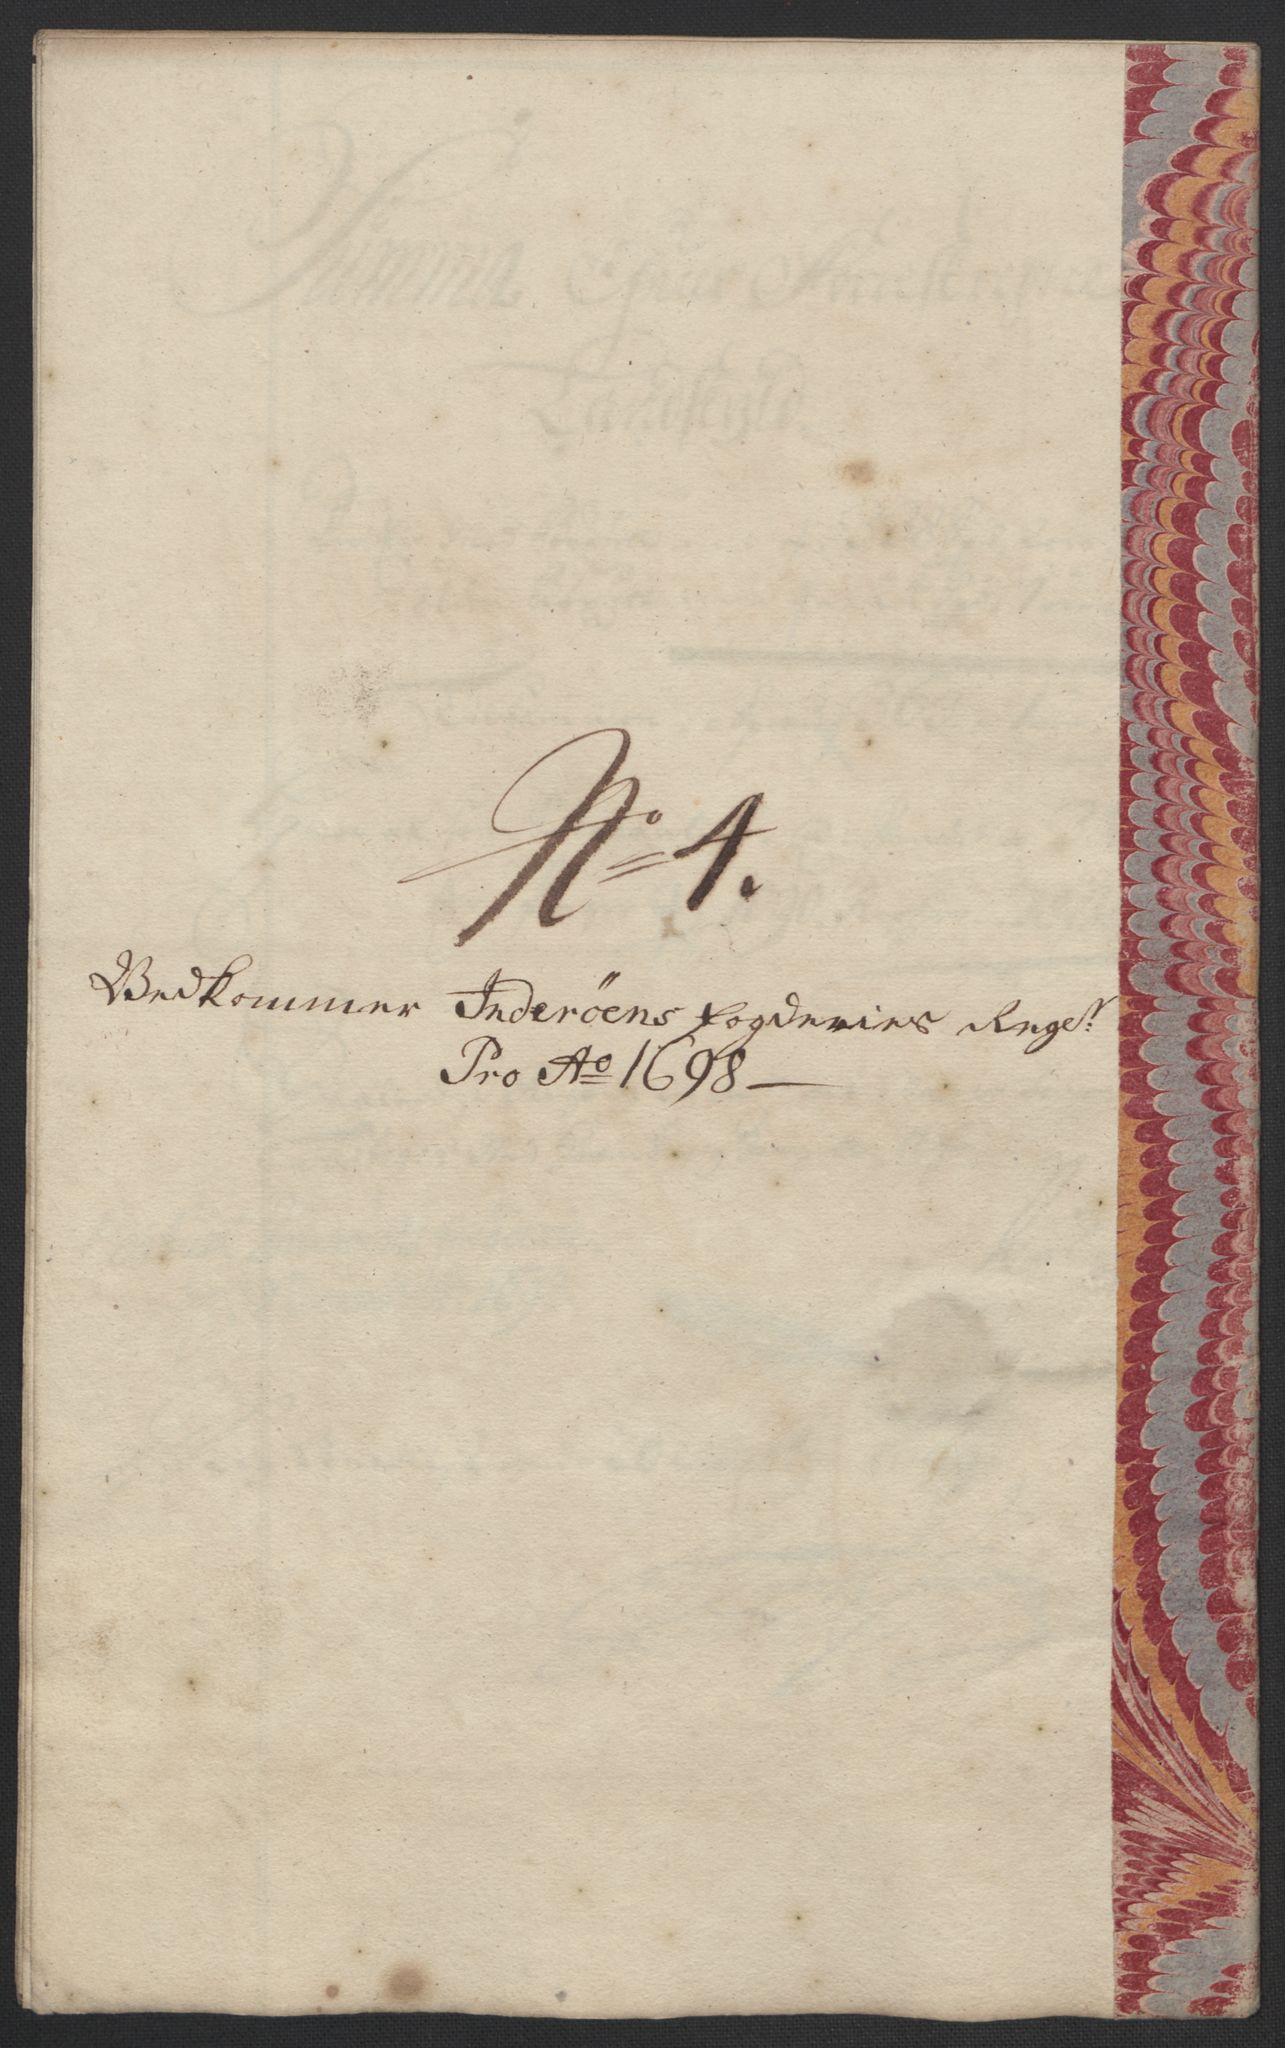 No 4.
Vedkommer Inderöens fogderies Regst:
Pro Ao 1698